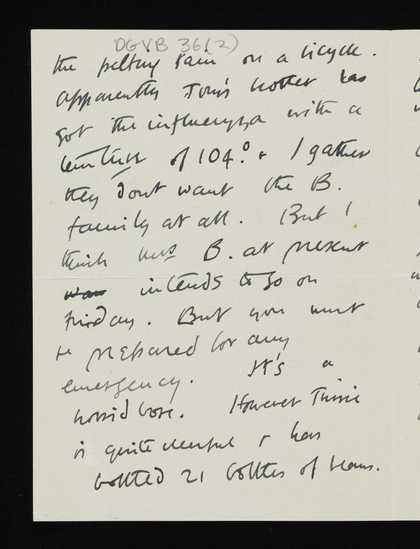 DGVB 36(2)
the pelting rain on a bicycle.
Apparently Tom's mother has
got the influenza with a
temperature of 104.° & I gather
they don't want the B.
family at all. But I
think Mrs B. at present
was intends to go on
Friday. But you must
be prepared for any
emergency. It's a
horrid bore. However Trissie
is quite cheerful & has
bottled 21 bottles of beans.